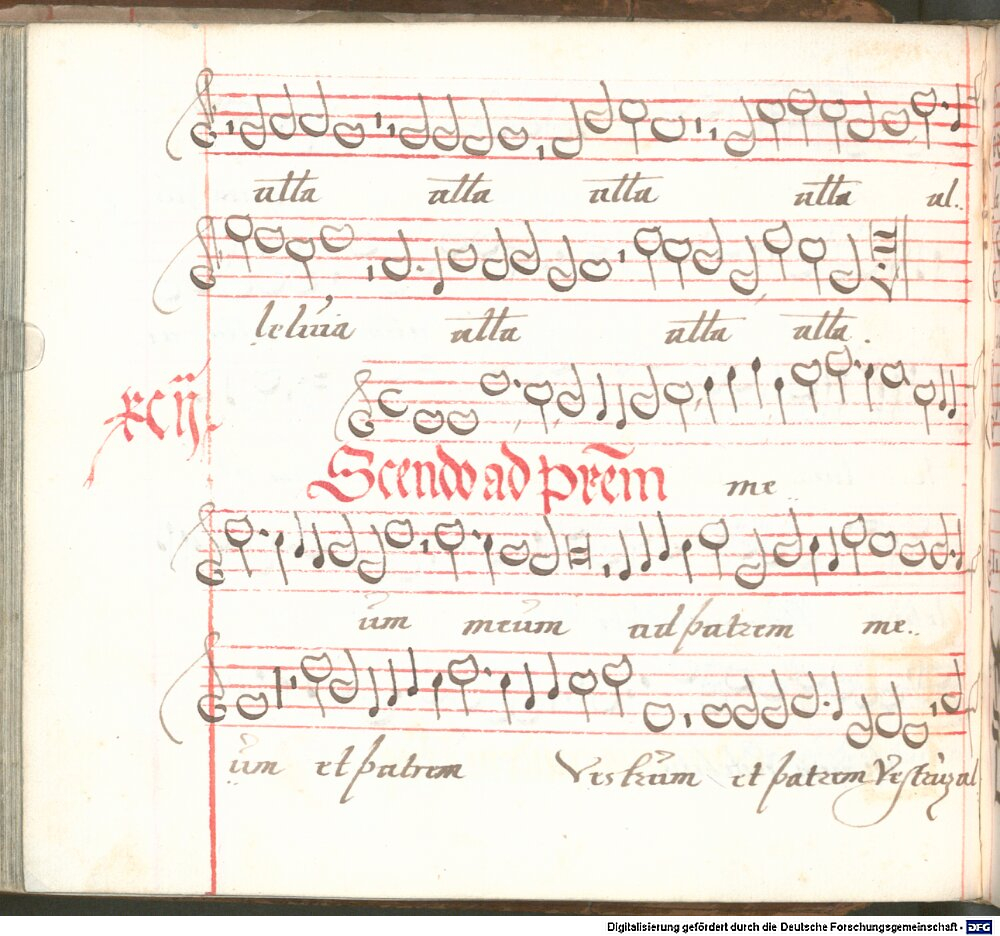 alła alła alła alła al..
leluia alła alła alła.
xcij.
Scendo ad pr̃em me..
um meum ad patrem me..
um et patrem Vestrum et patrem Vestrū al
Digitalisierung gefördert durch die Deutsche Forschungsgemeinschaft - DFG